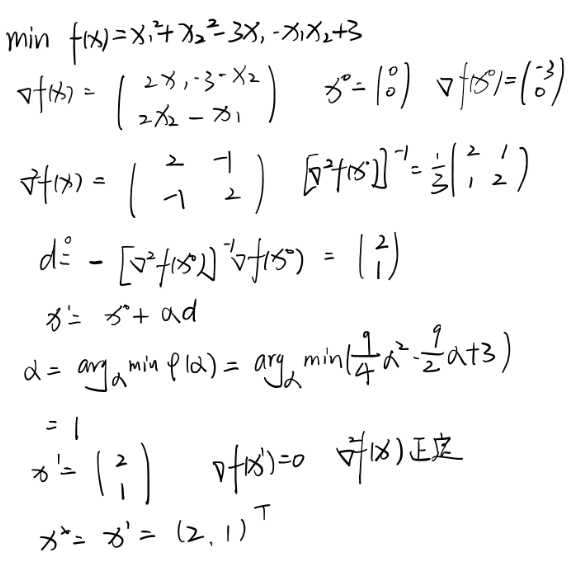 min f(x)=x₁²+x₂²-3x₁-x₁x₂+3
∇f(x)= (2x₁-3-x₂ 2x₂-x₁) x⁰=(0 0) ∇f(x⁰)=(-3 0)
∇²f(x)= (2 -1 -1 2) [∇²f(x⁰)]⁻¹=1/3(2 1 1 2)
d⁰=-[∇²f(x⁰)]⁻¹∇f(x⁰) = (2 1)
x¹= x⁰+αd
α= argα min φ(α)= argα min(9/4α²-9/2α+3)
=1
x¹=(2 1) ∇f(x¹)=0 ∇²f(x)正定
x*= x¹= (2,1)ᵀ